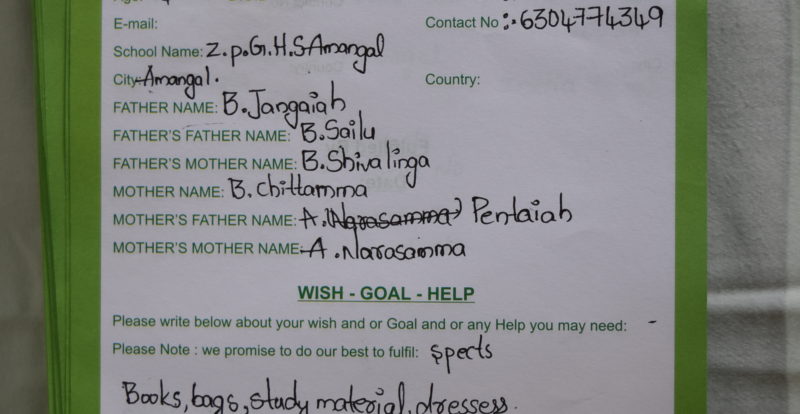 E-mail:
Contact No :. 6304774349
School Name: Z.p.G.H.S Amangal
City Amangal.
Country:
FATHER NAME: B. Jangaiah
FATHER'S FATHER NAME: B. Sailu
FATHER'S MOTHER NAME: B. Shivalinga
MOTHER NAME: B. Chittamma
MOTHER'S FATHER NAME: A. (Narasamma) Pentaiah
MOTHER'S MOTHER NAME: A. Narasamma
WISH - GOAL - HELP
Please write below about your wish and or Goal and or any Help you may need: -
Please Note : we promise to do our best to fulfil: spects
Books, bags, study material, dressess.